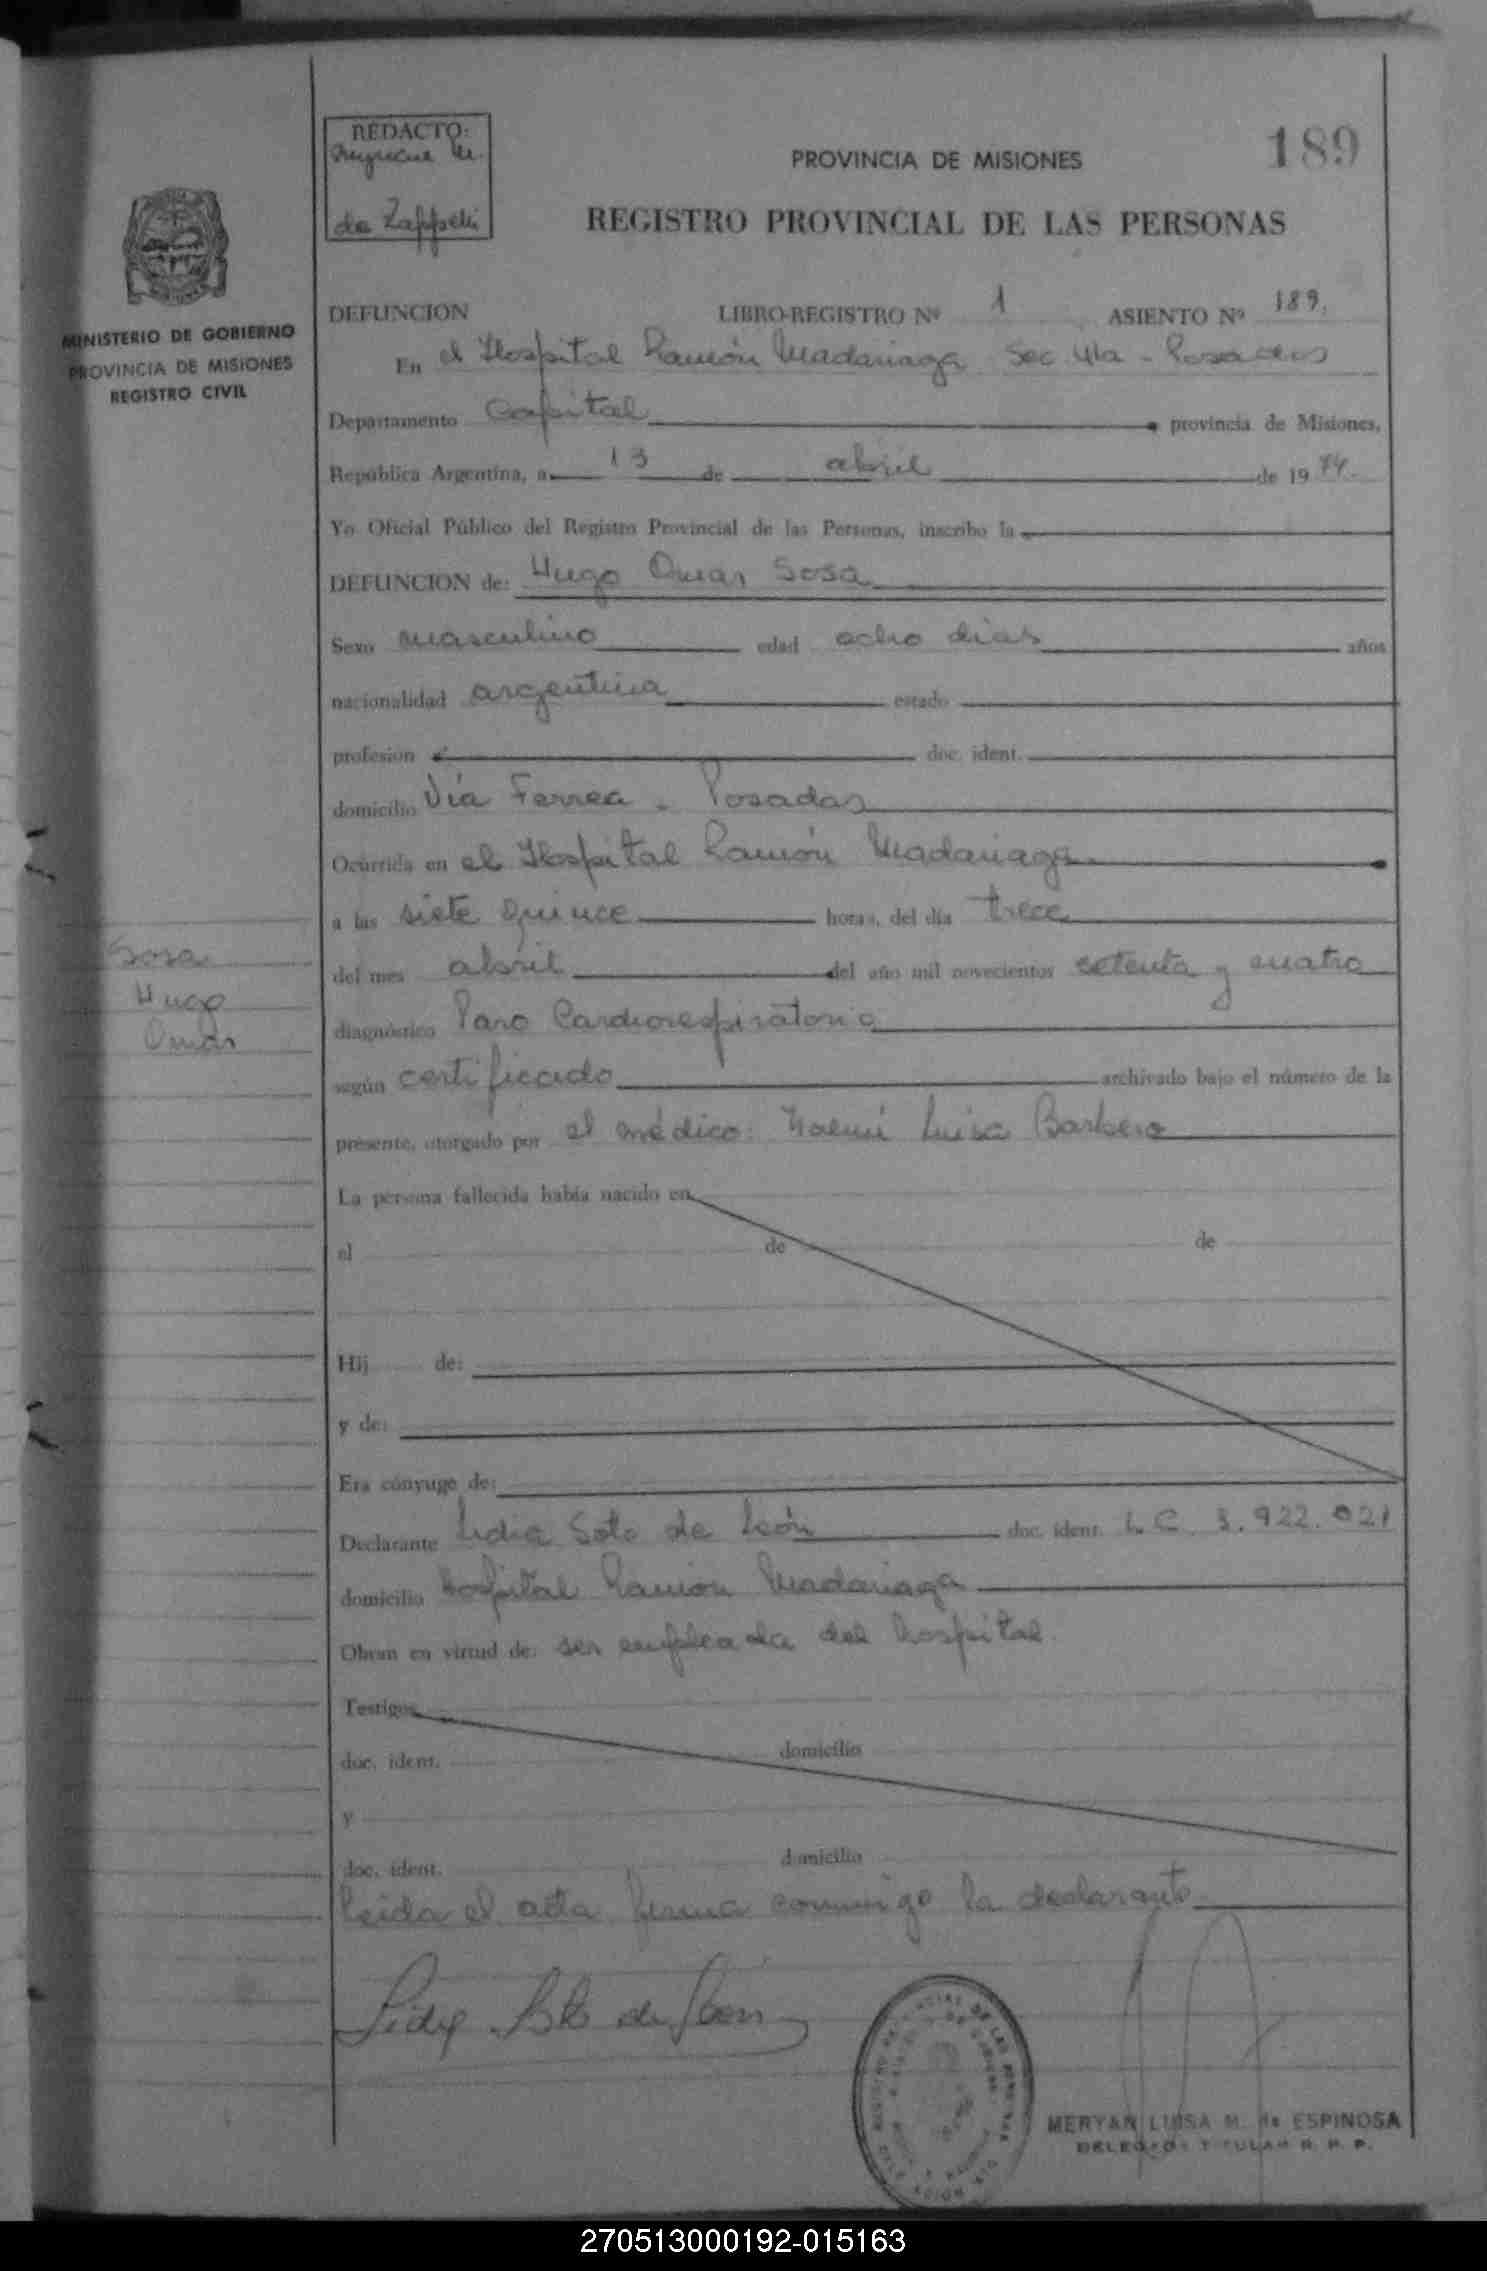 REDACTO:
de Zappelli
189
PROVINCIA DE MISIONES
REGISTRO PROVINCIAL DE LAS PERSONAS
MINISTERIO DE GOBIERNO
PROVINCIA DE MISIONES
REGISTRO CIVIL
DEFUNCION LIBRO-REGISTRO Nº 1 ASIENTO Nº 189.
En el Hospital Ramón Madariaga Sec 4ta - Posadas
Departamento Capital provincia de Misiones,
República Argentina, a 13 de abril de 1974.
Yo Oficial Público del Registro Provincial de las Personas, inscribo la
DEFUNCION de: Hugo Omar Sosa
Sexo masculino edad ocho dias años
nacionalidad argentina estado
profesion doc. ident.
domicilio Via Ferrea - Posadas
Ocurrida en el Hospital Ramón Madariaga
a las siete quince horas, del día trece
del mes abril del año mil novecientos setenta y cuatro
diagnóstico Paro Cardiorespiratorio
según certificado archivado bajo el número de la
presente, otorgado por el médico: Noemí Luisa Barbero
La persona fallecida había nacido en
el de de
Hij de:
y de:
Era cónyuge de:
Declarante Lidia Soto de León doc. ident. L.C. 3.922.021
domicilio Hospital Ramón Madariaga
Obran en virtud de: ser empleada del hospital.
Testigos
doc. ident. domicilio
y
doc. ident. domicilio
Leida el acta firma conmigo la declarante
Sosa
Hugo
Omar
Lidia Soto de León
MERYAN LUISA M. de ESPINOSA
DELEGADO TITULAR R. P. P.
270513000192-015163